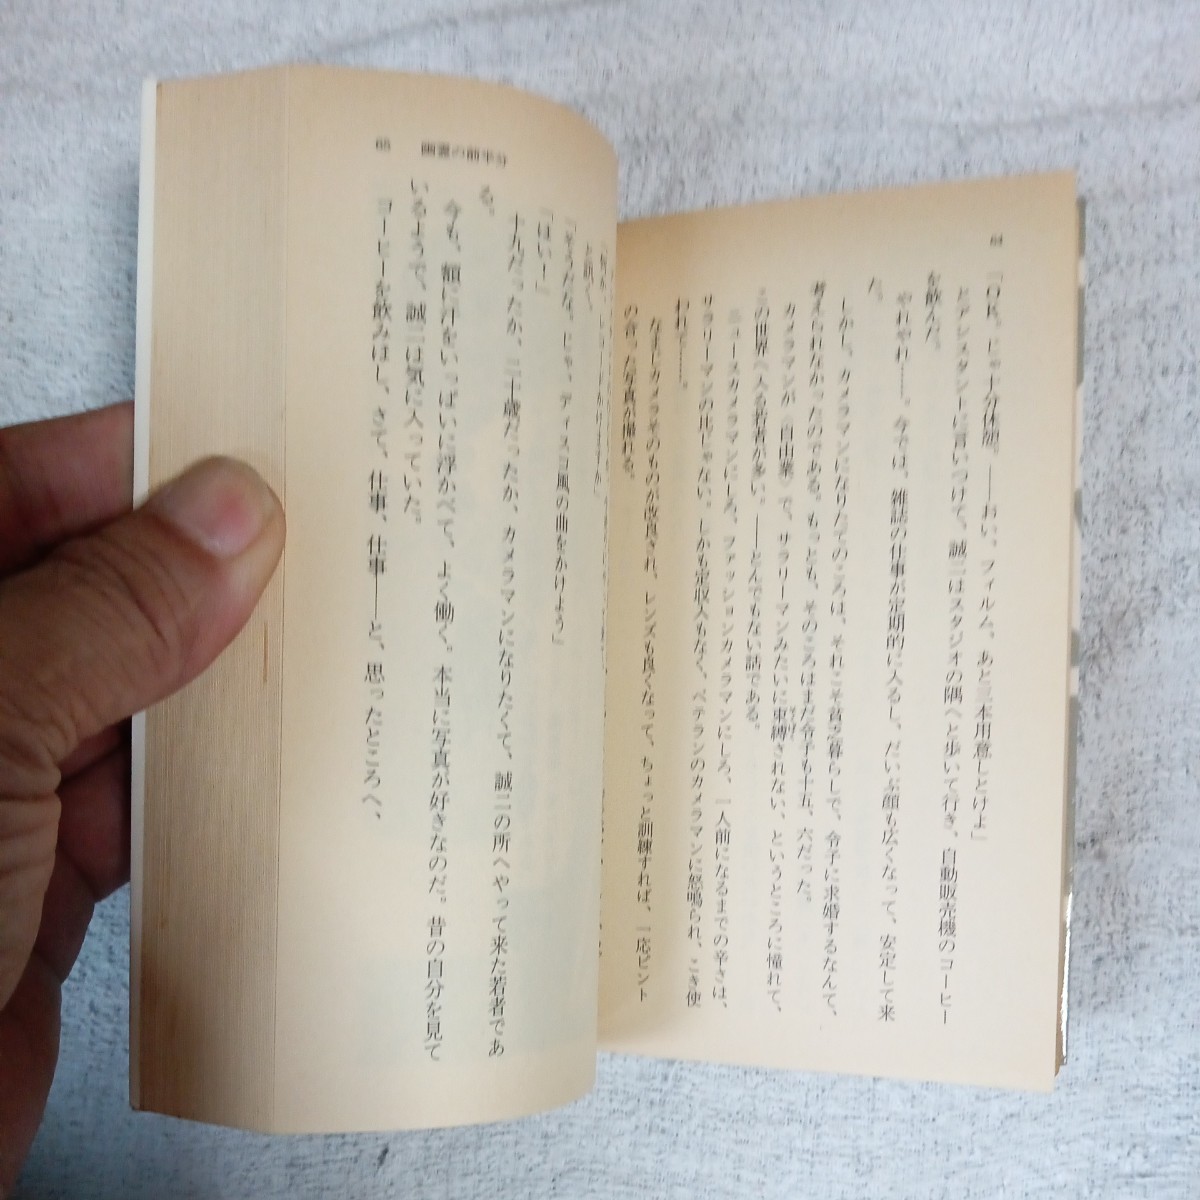 64
「OK。じゃ十分休憩。――おい、フィルム、あと三本用意しとけよ」
とアシスタントに言いつけて、誠二はスタジオの隅へと歩いて行き、自動販売機のコーヒー
を飲んだ。
やれやれ……。今では、雑誌の仕事が定期的に入るし、だいぶ顔も広くなって、安定して来
た。
しかし、カメラマンになりたてのころは、それこそ貧乏暮らしで、令子に求婚するなんて、
考えられなかったのである。もっとも、そのころはまだ令子も十五、六だった。
カメラマンが〈自由業〉で、サラリーマンみたいに束縛されない、というところに憧れて、
この世界へ入る若者が多い。――とんでもない話である。
ニュースカメラマンにしろ、ファッションカメラマンにしろ、一人前になるまでの辛さは、
サラリーマンの比じゃない。しかも定収入もなく、ベテランのカメラマンに怒鳴られ、こき使
われて……。
カメラそのものが改良され、レンズも良くなって、ちょっと訓練すれば、一応ピント
の合った写真が撮れる。
65 幽霊の前半分
と訊く。
「そうだな。じゃ、ディスコ風の曲をかけよう」
「はい!」
十九だったか、二十歳だったか、カメラマンになりたくて、誠二の所へやって来た若者であ
る。
今も、額に汗をいっぱいに浮かべて、よく働く。本当に写真が好きなのだ。昔の自分を見て
いるようで、誠二は気に入っていた。
コーヒーを飲みほし、さて、仕事、仕事――と、思ったところへ、